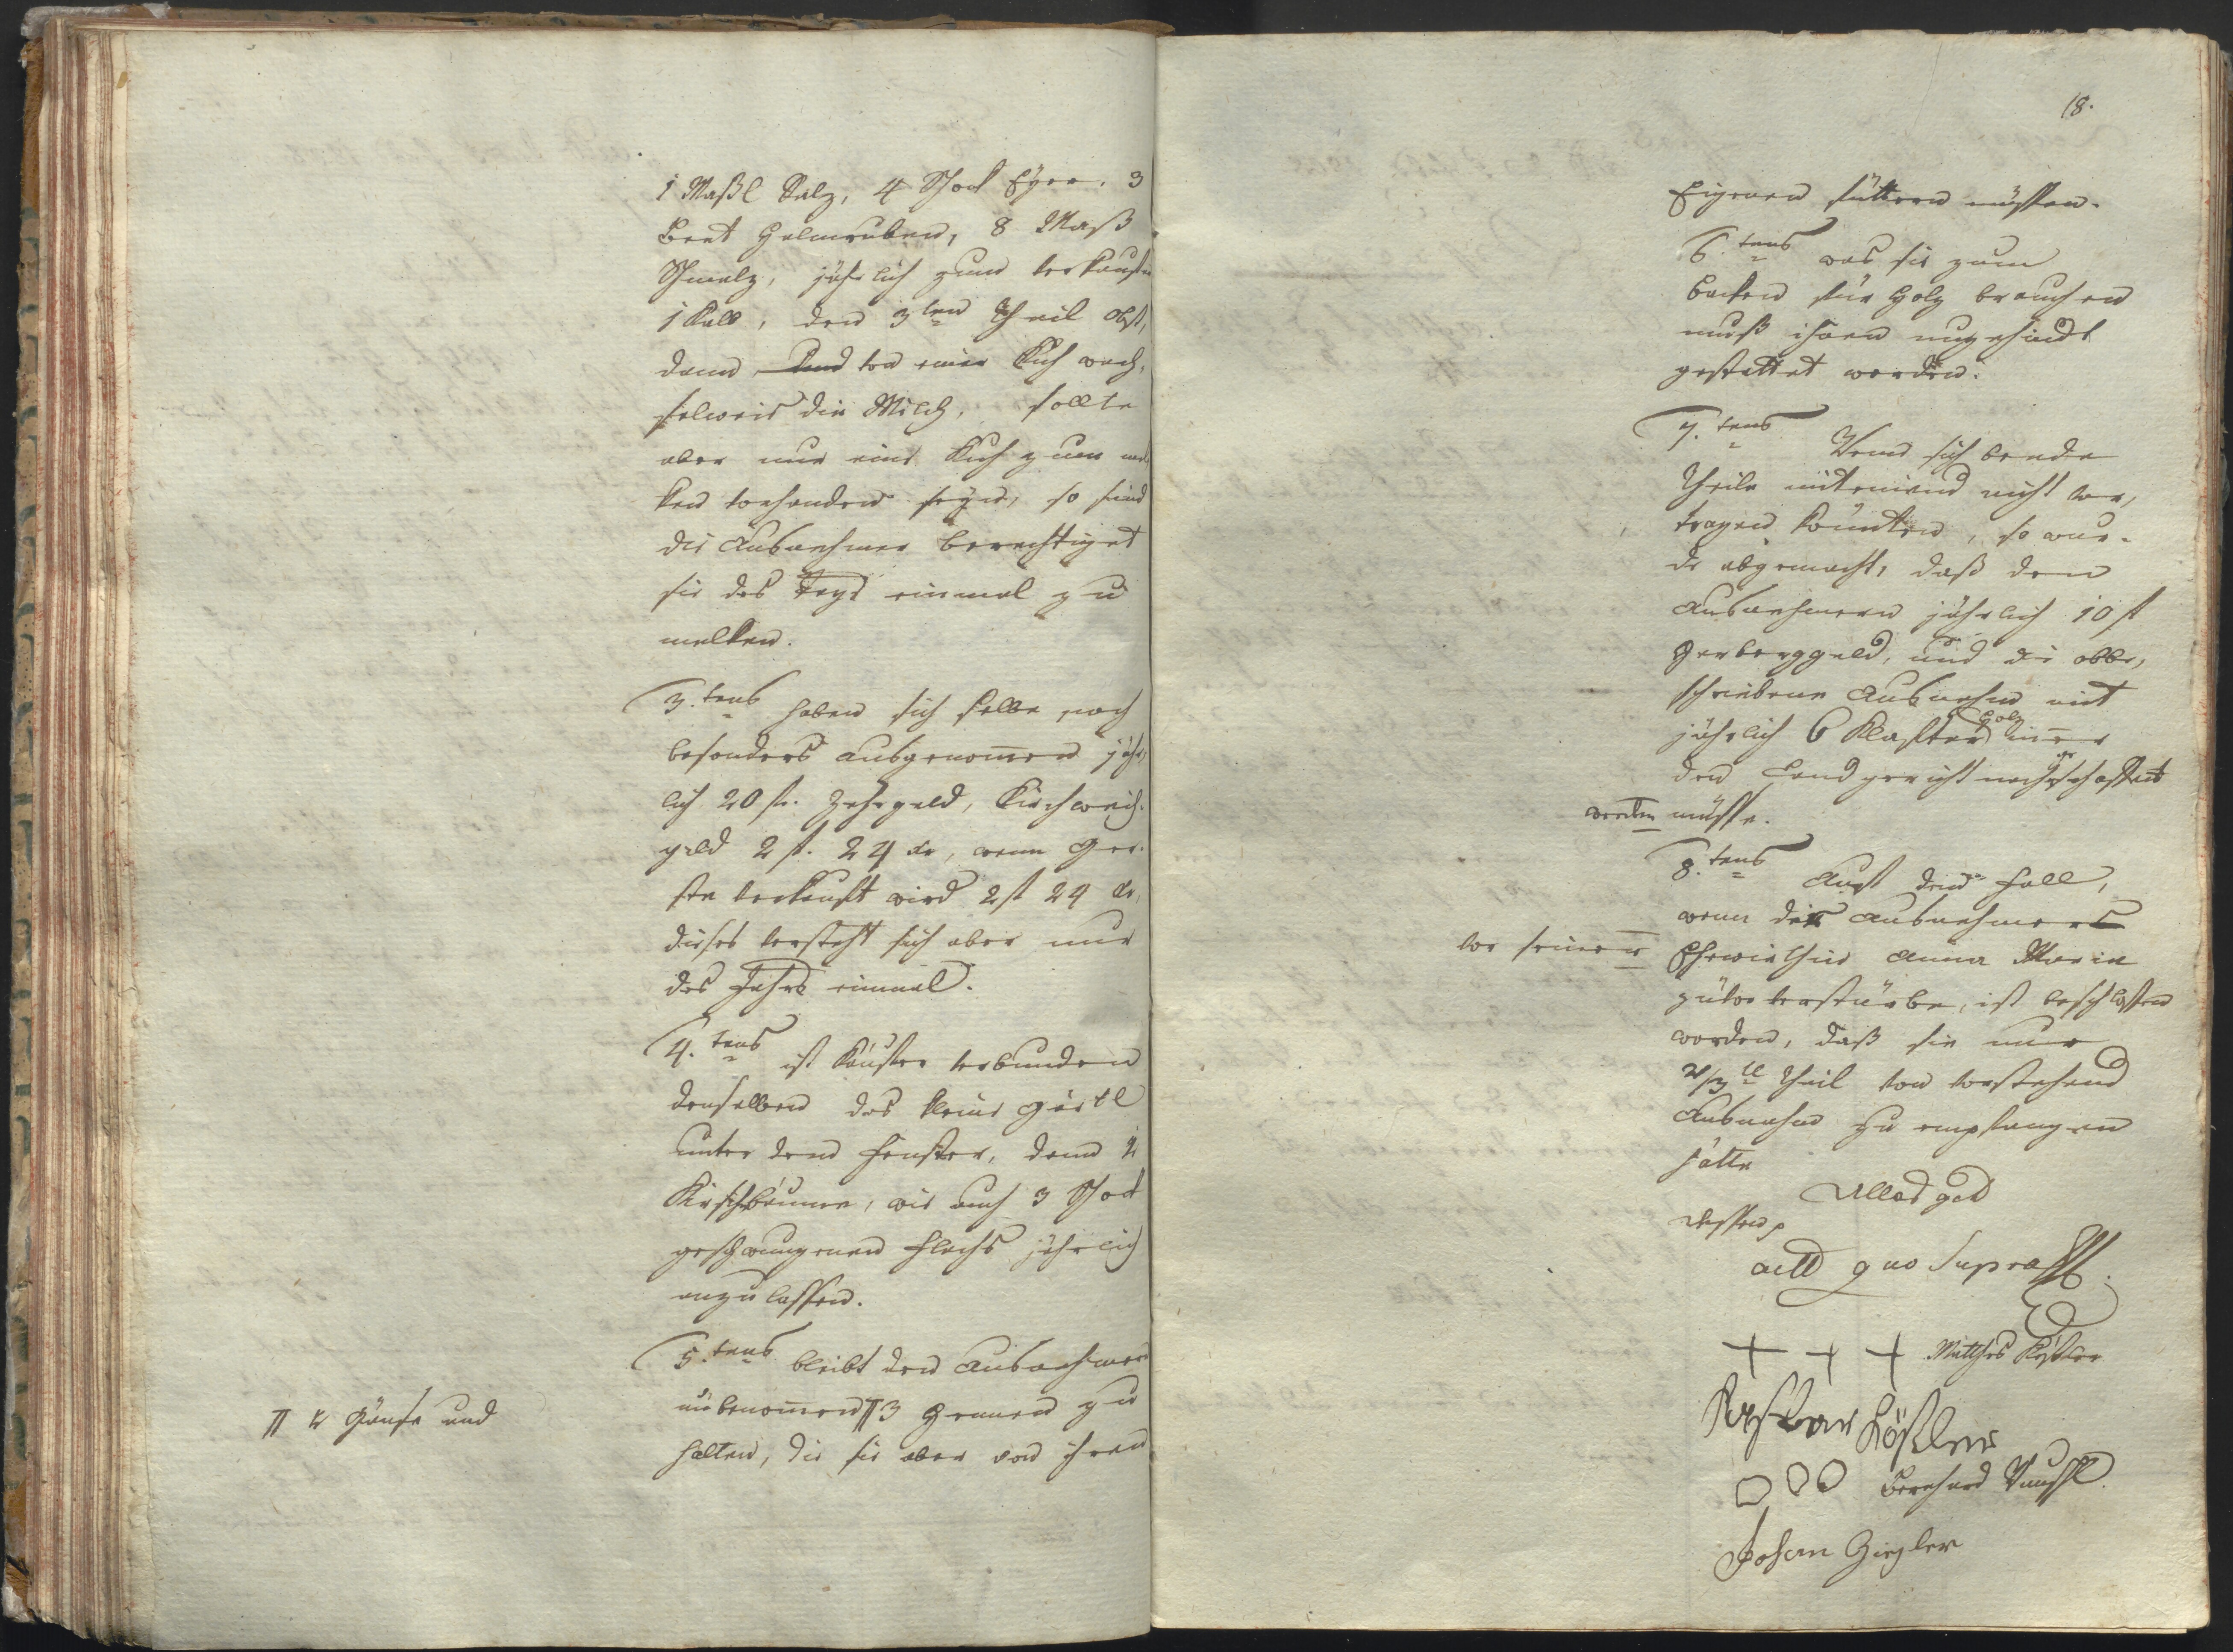 1 Maßl Salz, 4 Schock Eyer, 3
Beet Halmruben, 8 Maß
Schmalz, jährlich zum verkaufen
1 Kalb, den 3ten Theil Obst,
dann von einer Kuh wech¬
selweis die Milch, sollte
aber nur eine Kuh zum mel
ken vorhanden seyn, so sind
die Ausnehmer berechtiget
sie des Tags einmal zu
melken.
3.tens haben sich selbe noch
besonders ausgenommen jähr¬
lich 20 fl. Zehrgeld, Kirchweih¬
geld 2 fl. 24 kr, wenn Ger¬
ste verkauft wird 2 fl 24 kr,
dieses versteht sich aber nur
des Jahrs einmal.
4.tens ist Käufer verbunden
denselben das kleine Gärtl
unter dem Fenster, dann 2
Kirschbäume, wie auch 3 Schock
geschwungenen Flachs jährlich
anzulassen.
5.tens bleibt den Ausnehmern
unbenommen 3 Hennen zu
2 Gänse und
halten, die sie aber von ihren
18.
Eigenen füttern müssen.
6.tens was sie zum
backen für Holz brauchen
muß ihnen ungehindt
gestattet werden.
7.tens Wenn sich beede
Theile miteinand nicht ver¬
tragen könnten, so wur¬
de abgemacht, daß den
Ausnehmern jährlich 10 fl
Herberggeld, und die obbe¬
schriebene Ausnahm mit
jährlich 6 Klafter Holz
den Landgericht nachgeschaffent
werden müsse.
8.tens Auf den Fall,
wenn der Ausnehmer
vor seiner Ehewirthin Anna Maria
verstürbe, ist beschlossen
worden, daß sie nur
2/3tl Theil von vorstehend
Ausnahm zu empfangen
hätte
dessen
actu quo supra
+ + + Mathes Köstler
Köstler
O O O Bernhard
Johann Ziegler